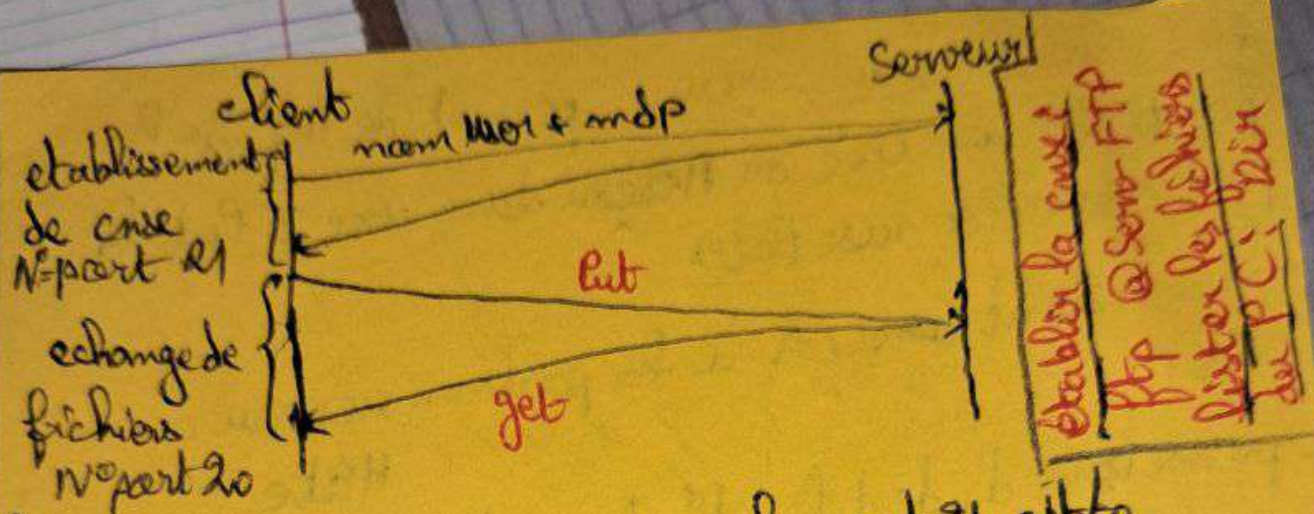 client
Serveur
nom user + mdp
etablissement
de cnxe
N° port 21
Put
echange de
fichiers
N° port 20
get
établir la cnx :
ftp @Serv-FTP
lister les fichiers
du PC : Dir